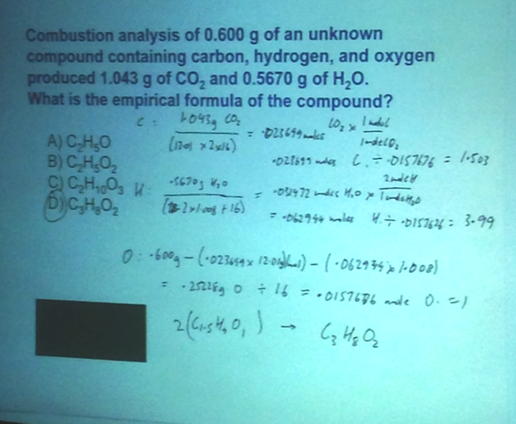 Combustion analysis of 0.600 g of an unknown
compound containing carbon, hydrogen, and oxygen
produced 1.043 g of CO₂ and 0.5670 g of H₂O.
What is the empirical formula of the compound?
A) C₂H₅O
B) C₃H₅O₂
C) C₂H₁₀O₃
D) C₃H₈O₂
C: 1.043g CO₂ / (12.01 + 2x16) = .023699 moles CO₂ x 1 mol C / 1 mole CO₂
.023699 moles C ÷ .0157676 = 1.503
H: .5670g H₂O / (2x1.008 + 16) = .031472 moles H₂O x 2 mole H / 1 mole H₂O
= .062944 moles H ÷ .0157676 = 3.99
O: .600g - (.023699 x 12.01) - (.062944 x 1.008)
= .25228g O ÷ 16 = .0157676 mole O. = 1
2(C₁.₅H₄O₁) → C₃H₈O₂